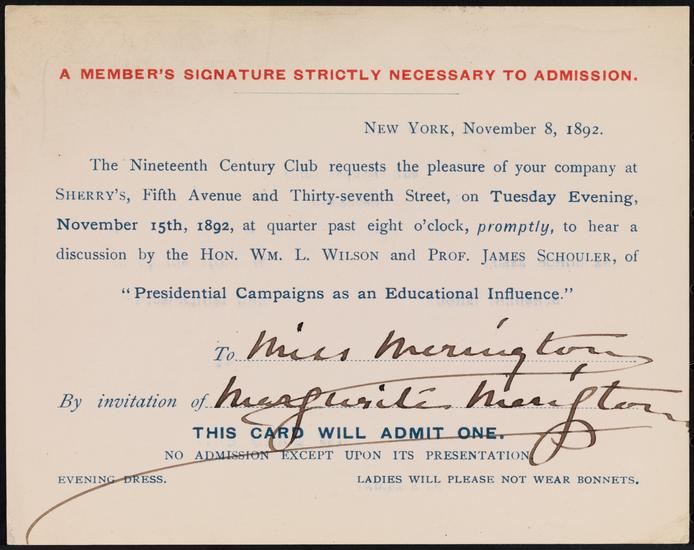 A MEMBER'S SIGNATURE STRICTLY NECESSARY TO ADMISSION.
NEW YORK, November 8, 1892.
The Nineteenth Century Club requests the pleasure of your company at
SHERRY'S, Fifth Avenue and Thirty-seventh Street, on Tuesday Evening,
November 15th, 1892, at quarter past eight o'clock, promptly, to hear a
discussion by the HON. WM. L. WILSON and PROF. JAMES SCHOULER, of
"Presidential Campaigns as an Educational Influence."
To Miss Merington
By invitation of Marguerite Merington
THIS CARD WILL ADMIT ONE.
NO ADMISSION EXCEPT UPON ITS PRESENTATION
EVENING DRESS. LADIES WILL PLEASE NOT WEAR BONNETS.